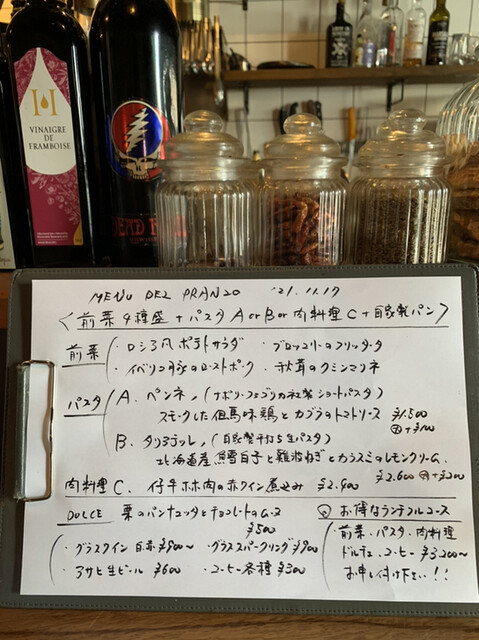 VINAIGRE
DE
FRAMBOISE
DEAD
MENU DEL PRANZO '21.11.17
〈前菜4種盛+パスタA or B or 肉料理C+自家製パン〉
前菜 ・ロシア風ポテトサラダ ・ブロッコリーのフリッタータ
・イベリコ豚のローストポーク ・秋茸のクミンマリネ
パスタ A. ペンネ,(ナポリ・ファブリカ社製ショートパスタ)
スモークした但馬味鶏とカブラのトマトソース ¥1,500
大+¥100
B. タリアテッレ,(自家製平打ち生パスタ)
北海道産鱈白子と難波ねぎとカラスミのレモンクリーム.
¥2,600 大+¥200
肉料理 C. 仔牛ホホ肉の赤ワイン煮込み ¥2,900
DOLCE 栗のパンナコッタとチョコレートのムース
¥500
・グラスワイン 白赤 ¥800〜 ・グラススパークリング ¥900
・アサヒ生ビール ¥600 ・コーヒー各種 ¥300
お得なランチフルコース
前菜・パスタ・肉料理
ドルチェ・コーヒー ¥3,200〜
お申し付け下さい!!